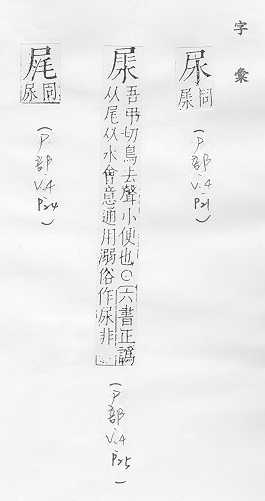 字彙
尿
同
(尸部
v.4
P21)
吾弔切鳥去聲小便也○六書正譌
从尾从水會意通用溺俗作尿非
(尸部
v.4
P25)
同
尿
(尸部
v.4
P24)